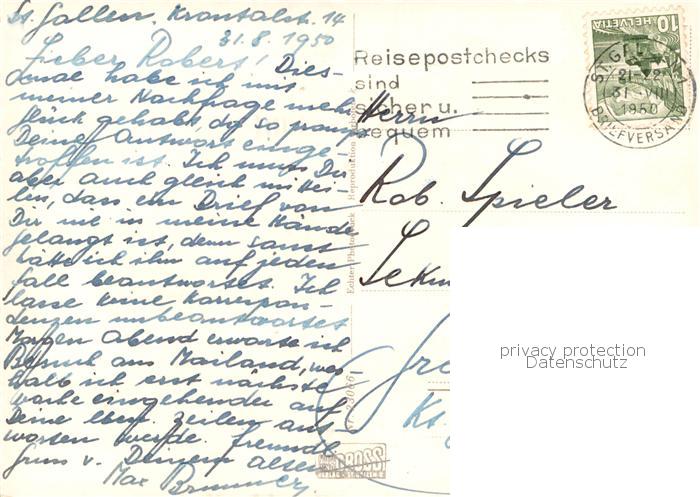 St. Gallen, Krontalstr. 14
31.8.1950
Lieber Robert! Dies-
mal habe ich mit
meiner Nachfrage mehr
Glück gehabt, da so prompt
Deine Antwort einge-
troffen ist. Ich muss Dir
aber auch gleich mittei-
len, dass ein Brief von
Dir nie in meine Hände
gelangt ist, denn sonst
hätte ich ihn auf jeden
Fall beantwortet. Ich
lasse keine Korrespon-
denzen unbeantwortet
Morgen Abend erwarte ich
Besuch aus Mailand, wes-
halb ich erst nächste
Woche eingehender auf
Deine lben. Zeilen ant-
worten werde. Freundl.
Gruss v. Deinem alten
Max
Reisepostchecks
sind
sicher u.
bequem
HELVETIA
10
ST. GALLEN
21-22
31. VIII
1950
BRIEFVERSAND
Herrn
Rob. Spieler
Sekun
Kt.
Echter Photodruck
Reproduction
GROSS
privacy protection
Datenschutz